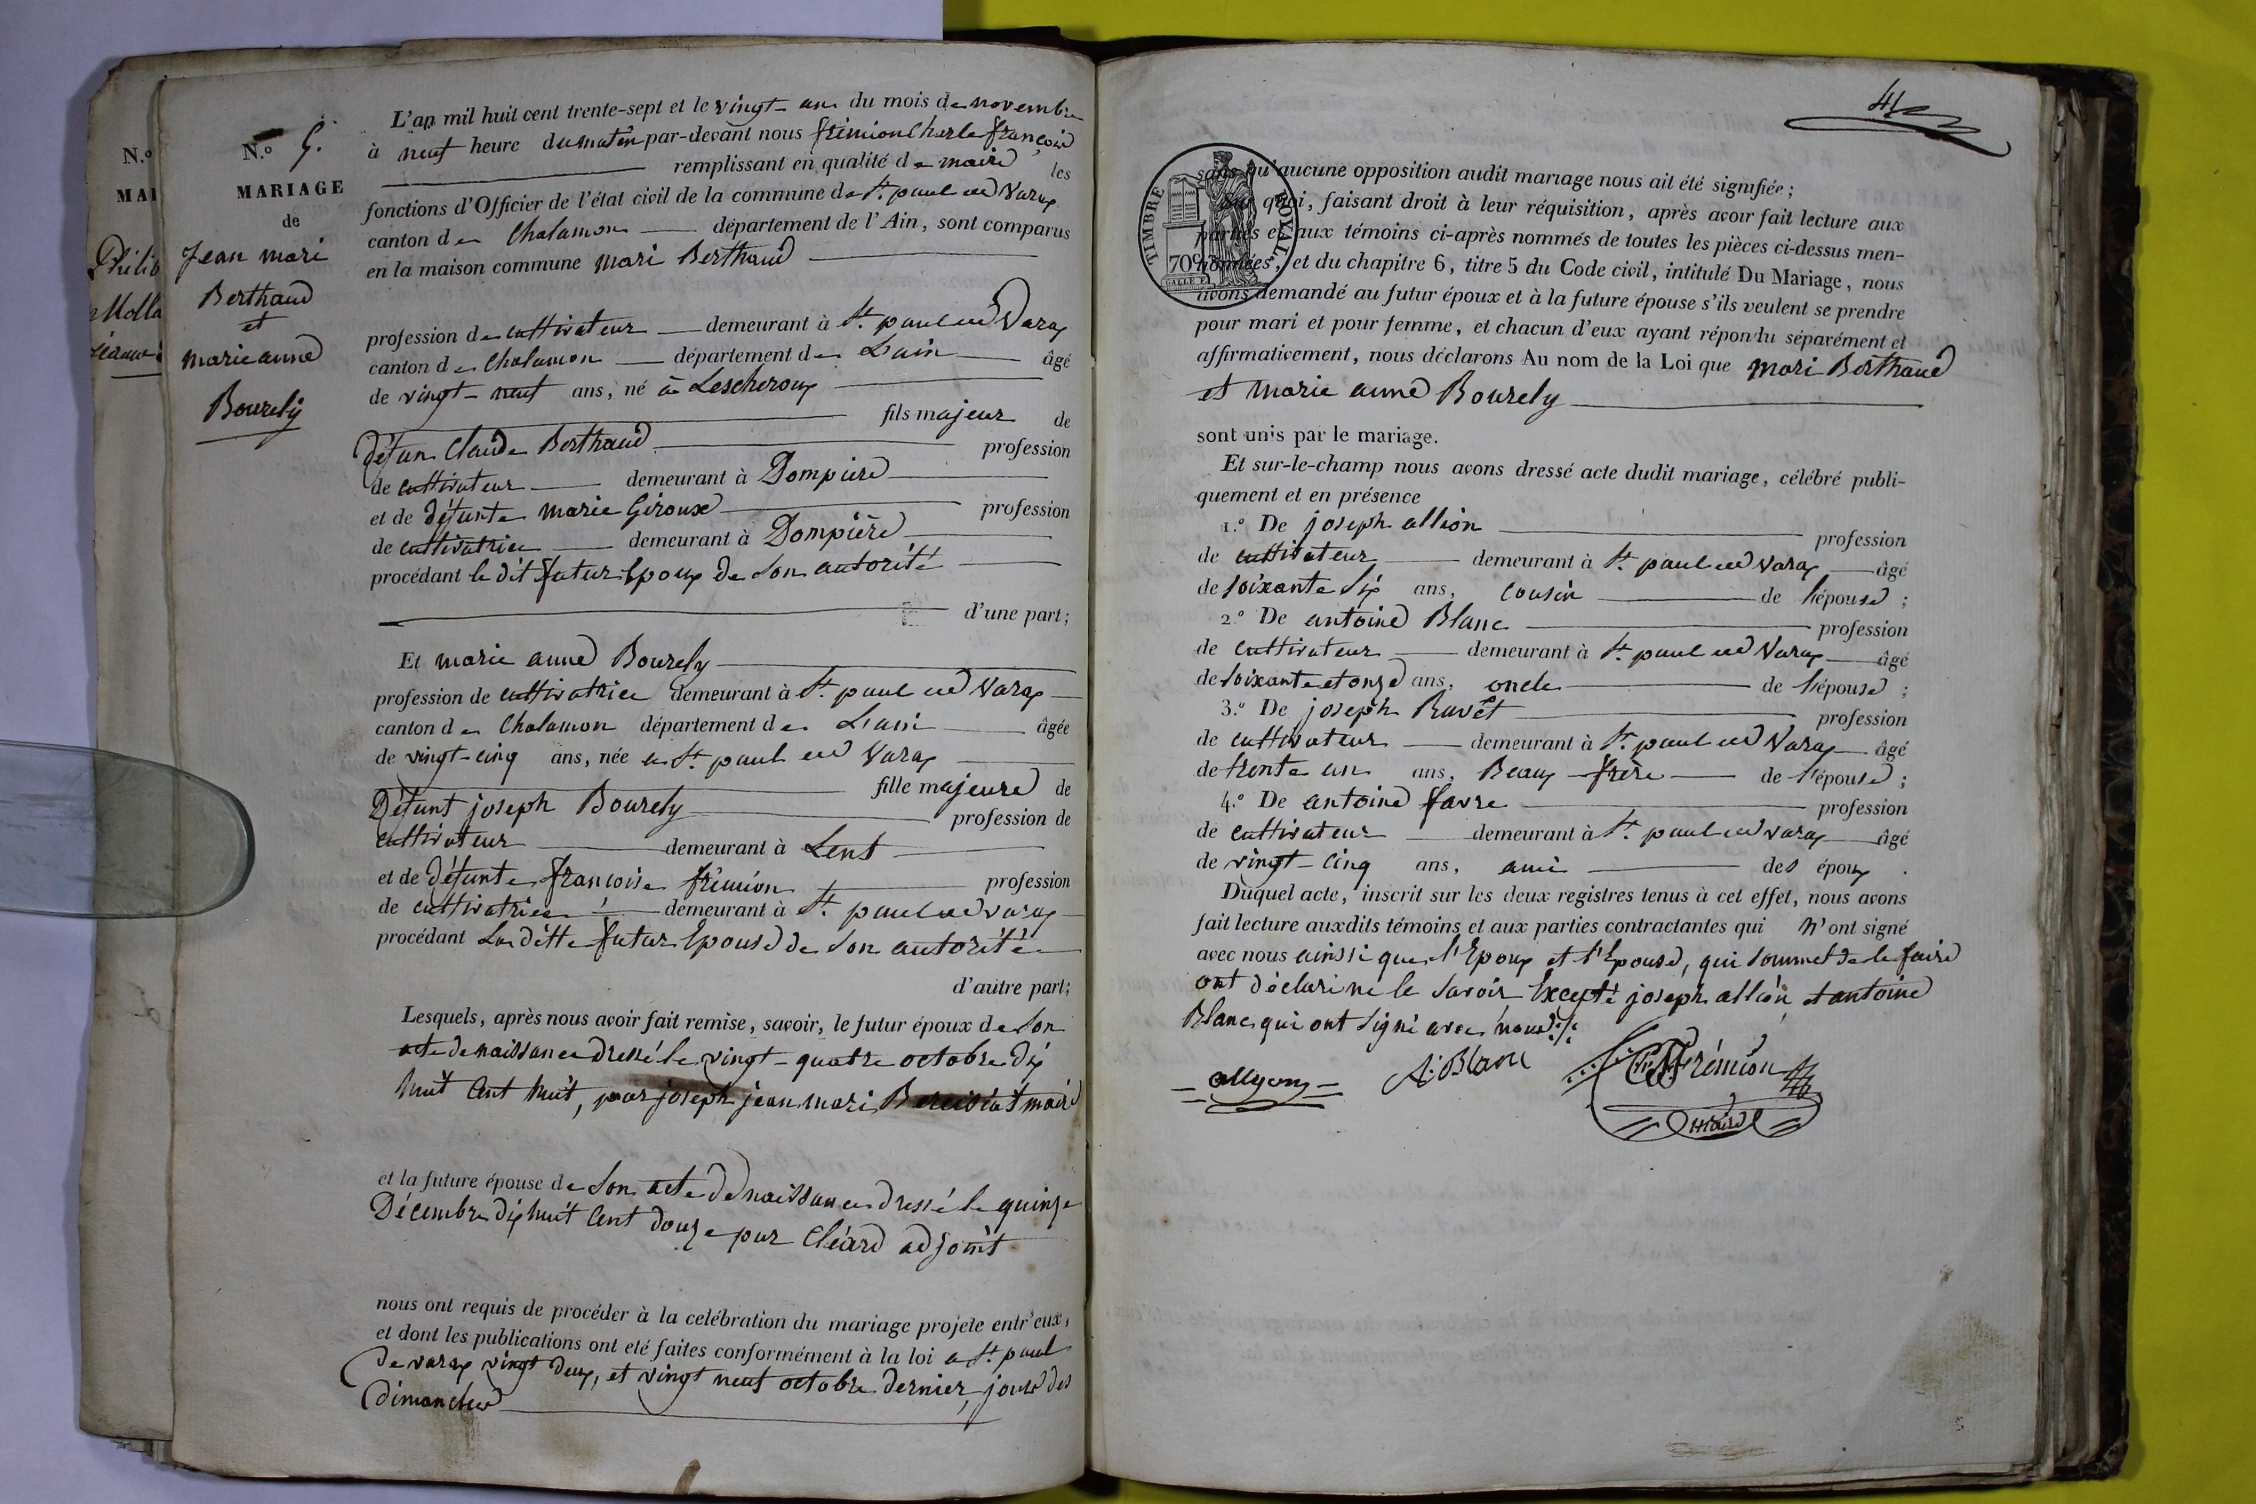 N.o
MAI
Philib
Molla
N.o 9.
MARIAGE
de
Jean mari
Berthaud
et
marie anne
Bourely
L'an mil huit cent trente-sept et le vingt-un du mois de novembre
à neuf heure du matin par-devant nous frémion Charle françois
remplissant en qualité de maire les
fonctions d'Officier de l'état civil de la commune de St. paul de Varax
canton de Chalamon département de l'Ain, sont comparus
en la maison commune mari Berthaud
profession de cultivateur demeurant à St. paul de Varax
canton de Chalamon département de L'ain âgé
de vingt-neuf ans, né à Lescheroux
fils majeur de
défun Claude Berthaud profession
de cultivateur demeurant à Dompiere
et de défunte marie Giroux profession
de cultivatrice demeurant à Dompière
procédant le dit futur Epoux de Son autorité
d'une part;
Et marie anne Bourely
profession de cultivatrice demeurant à St. paul de Varax
canton de Chalamon département de L'ain âgée
de vingt-cinq ans, née a St. paul de Varax
fille majeure de
Défunt joseph Bourely profession de
cultivateur demeurant à Lent
et de défunte françoise frémion profession
de cultivatrice demeurant à St. paul de varax
procédant La ditte futur Epouse de Son autorité
d'autre part;
Lesquels, après nous avoir fait remise, savoir, le futur époux de Son
acte de naissance dressé le vingt-quatre octobre dix
huit Cent huit, par joseph jean mari maire
et la future épouse de Son acte de naissance dressé le quinze
Décembre dix huit Cent douze par Cléard adjoint
nous ont requis de procéder à la celébration du mariage projeté entr'eux,
et dont les publications ont eté faites conformément à la loi a St. paul
de varax vingt deux, et vingt neuf octobre dernier, jours des
dimanche
41
TIMBRE ROYAL
70c
sans qu'aucune opposition audit mariage nous ait été signifiée;
Sur quoi, faisant droit à leur réquisition, après avoir fait lecture aux
parties et aux témoins ci-après nommés de toutes les pièces ci-dessus men-
tionnées, et du chapitre 6, titre 5 du Code civil, intitulé Du Mariage, nous
avons demandé au futur époux et à la future épouse s'ils veulent se prendre
pour mari et pour femme, et chacun d'eux ayant répondu séparément et
affirmativement, nous déclarons Au nom de la Loi que mari Berthaud
et marie anne Bourely
sont unis par le mariage.
Et sur-le-champ nous avons dressé acte dudit mariage, célébré publi-
quement et en présence
1.o De joseph allion profession
de cultivateur demeurant à St. paul de Varax âgé
de soixante Six ans, cousin de l'épouse;
2.o De antoine Blanc profession
de cultivateur demeurant à St. paul de Varax âgé
de soixante et onze ans, oncle de l'épouse;
3.o De joseph Ravet profession
de cultivateur demeurant à St. paul de Varax âgé
de trente un ans, Beaux-frère de l'épouse;
4.o De antoine favre profession
de cultivateur demeurant à St. paul de varax âgé
de vingt-cinq ans, ami des époux.
Duquel acte, inscrit sur les deux registres tenus à cet effet, nous avons
fait lecture auxdits témoins et aux parties contractantes qui n'ont signé
avec nous ainssi que l'Epoux et l'Epouse, qui sommet de le faire
ont déclaré ne le Savoir Excepté joseph allion, et antoine
Blanc qui ont Signé avec nous ./.
allyon
A. Blanc
Frémion
Maire